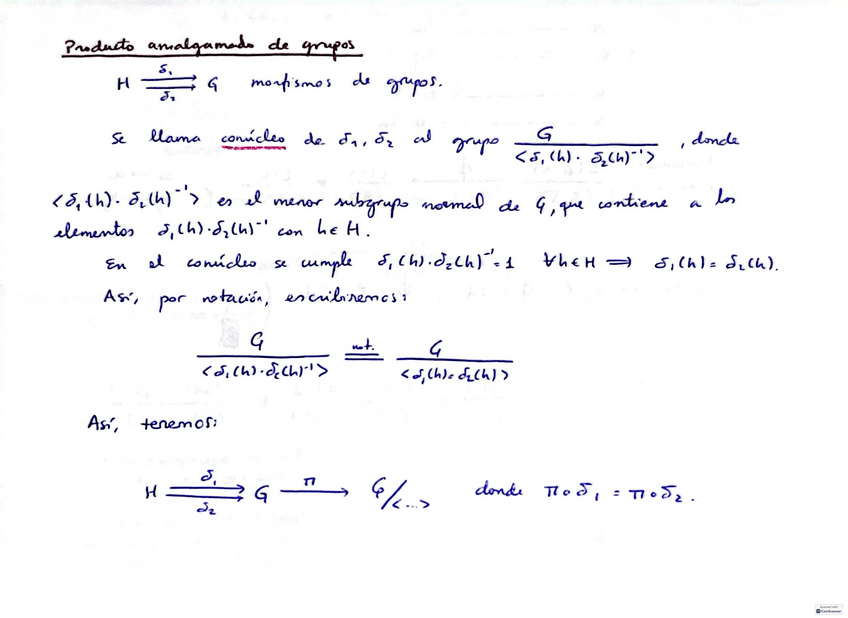 Producto amalgamado de grupos
H ⇉ G morfismos de grupos. (δ₁, δ₂)
Se llama conúcleo de δ₁, δ₂ al grupo G / <δ₁(h)·δ₂(h)⁻¹>, donde
<δ₁(h)·δ₂(h)⁻¹> es el menor subgrupo normal de G, que contiene a los
elementos δ₁(h)·δ₂(h)⁻¹ con h∈H.
En el conúcleo se cumple δ₁(h)·δ₂(h)⁻¹=1 ∀h∈H ⟹ δ₁(h)=δ₂(h).
Así, por notación, escribiremos:
G / <δ₁(h)·δ₂(h)⁻¹> not. = G / <δ₁(h)=δ₂(h)>
Así, tenemos:
H ⇉ G → G/<...> donde π∘δ₁ = π∘δ₂. (δ₁, δ₂, π)
Scanned with
CamScanner